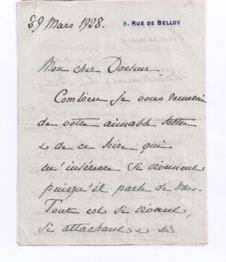 29 Mars 1928.
8, RUE DE BELLOY
Mon cher Docteur
Combien je vous remercie
de votre aimable lettre
et de ce livre qui
m'intéresse si vivement
puisqu'il parle de
Tout est si vivant,
si attachant